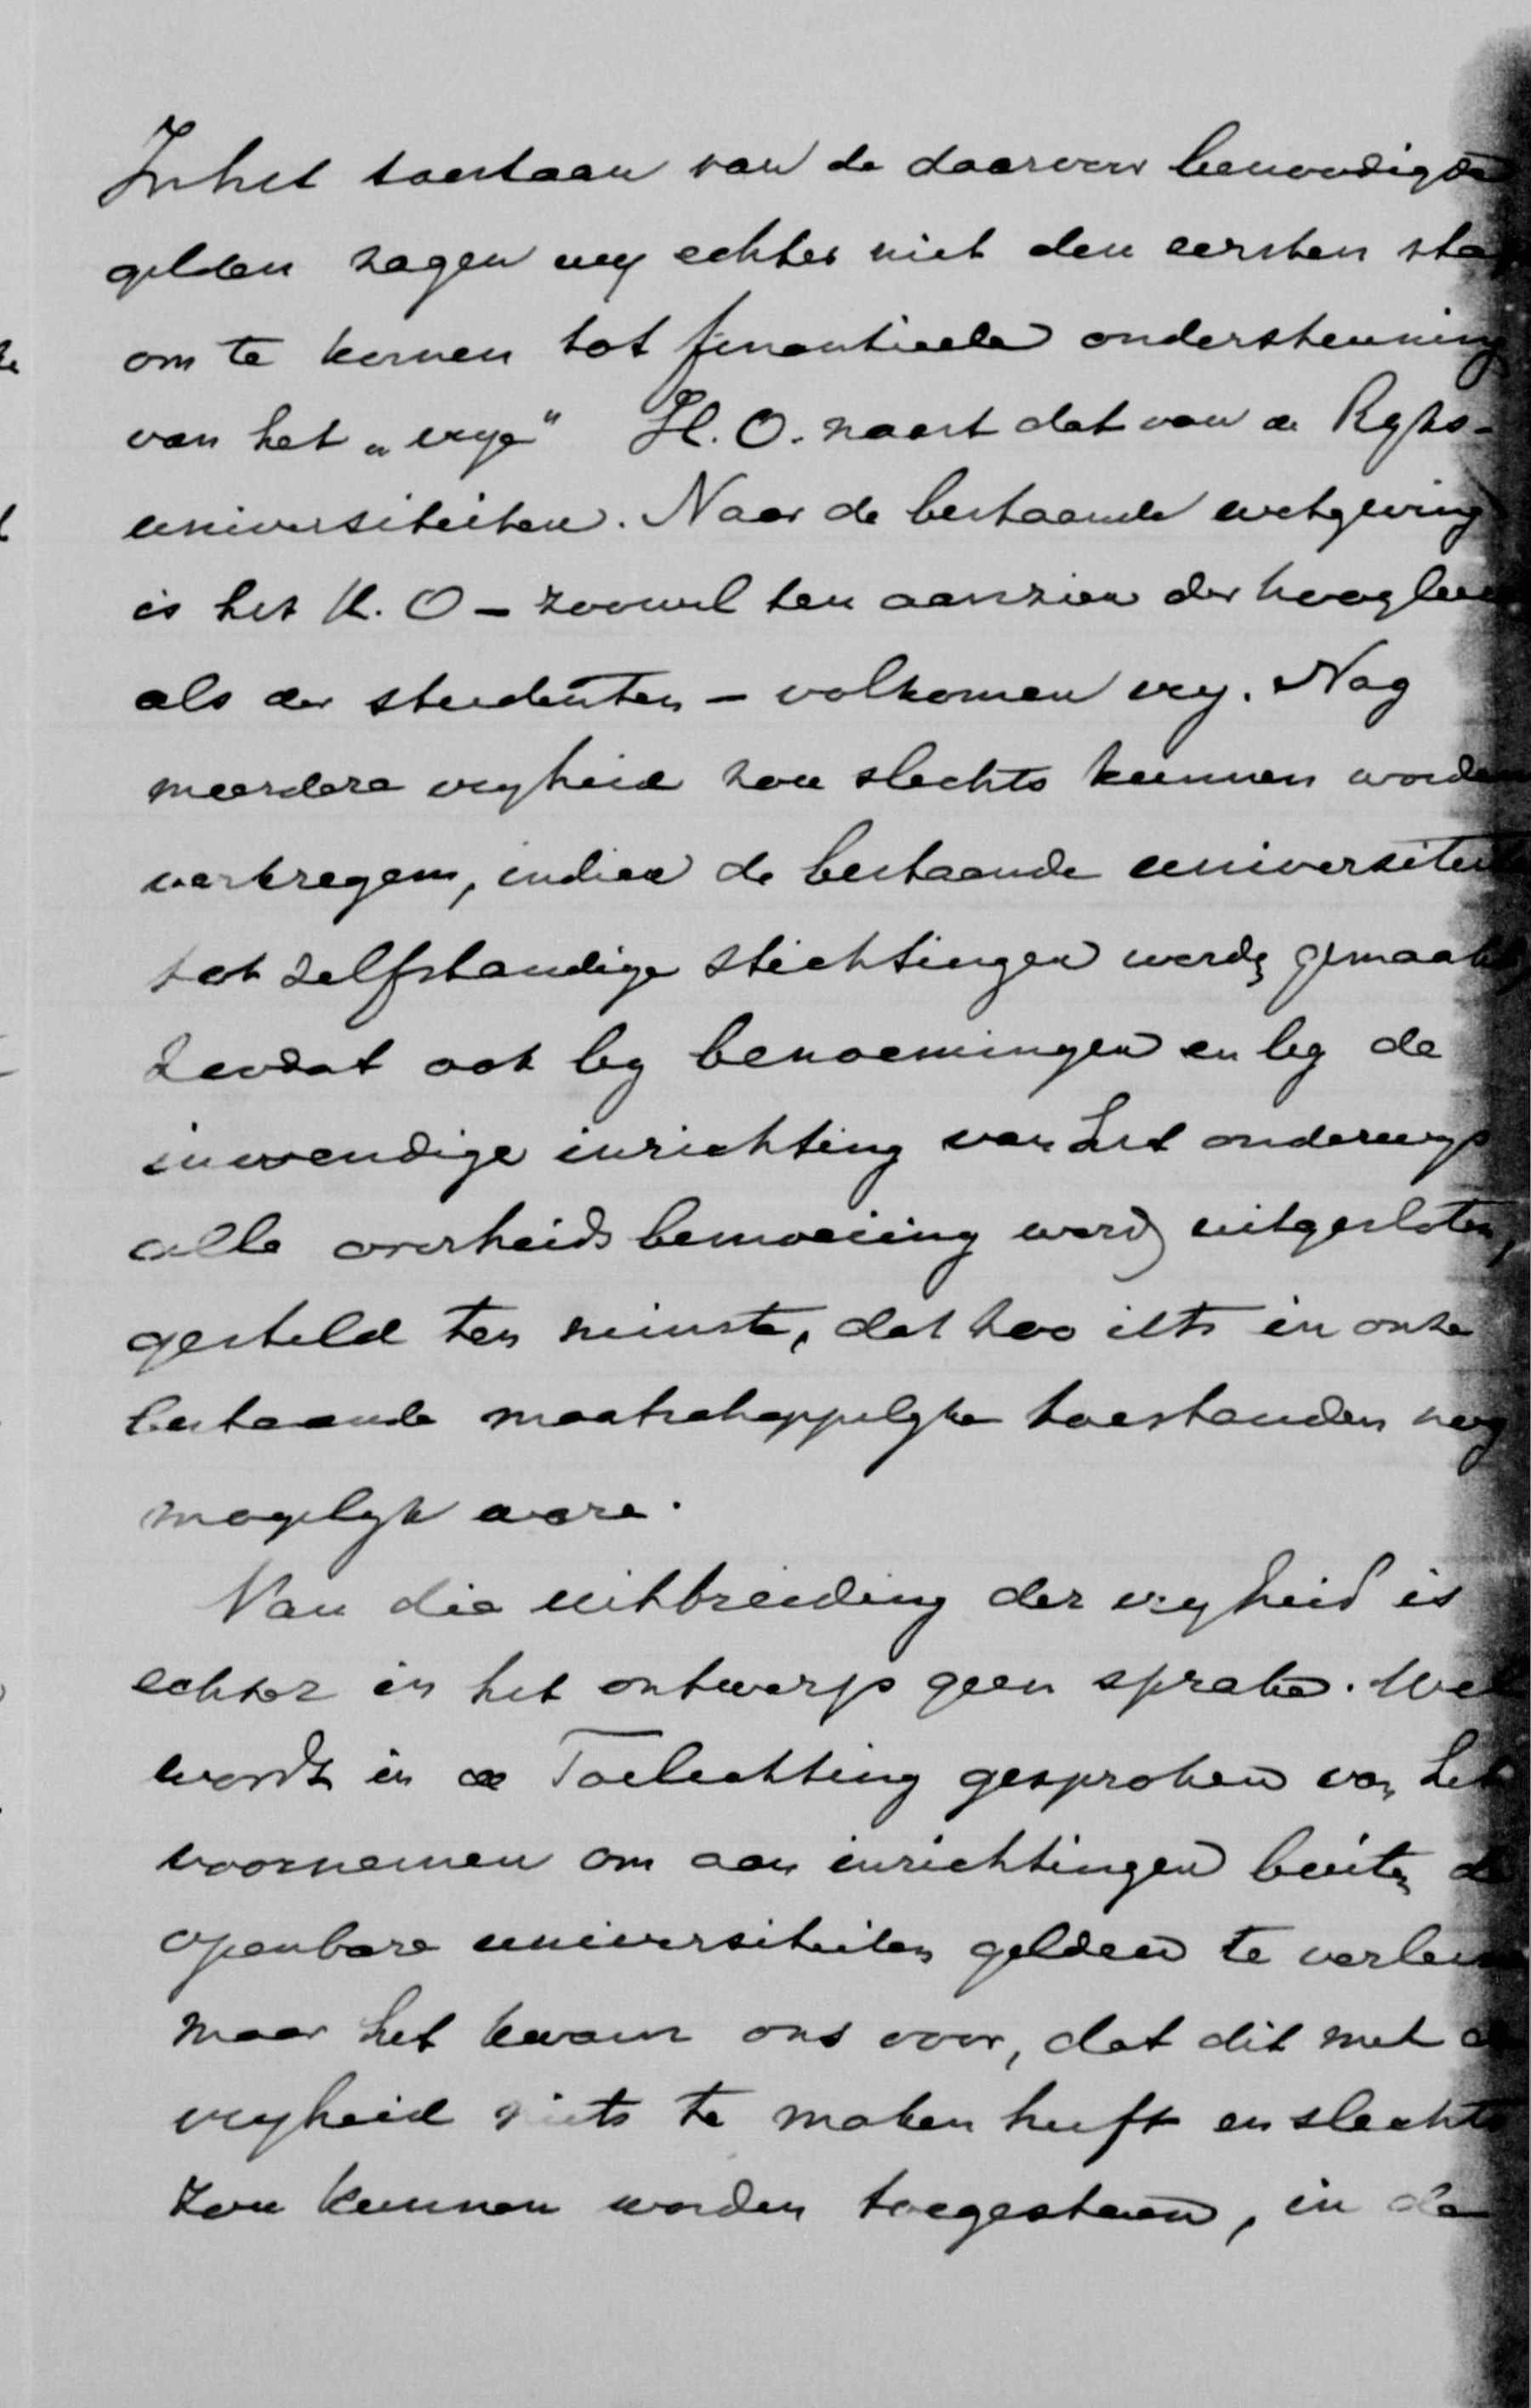 In het toestaan van de daarvoor benoodigde
gelden zagen wy echter niet den eersten stap
om te komen tot finantieele ondersteuning
van het „vrye" H.O. naast dat van de Ryks-
universiteiten. Naar de bestaande wetgeving
is het H.O – zoowel ten aanzien der hooglee
als der studenten – volkomen vry. Nog
meerdere vryheid zou slechts kunnen worden
verkregen, indien de bestaande universiteit
tot zelfstandige stichtingen werdn gemaakt,
zoodat ook by benoemingen en by de
inwendige inrichting van het onderwys
alle overheidsbemoeiing werd uitgesloten,
gesteld ten minste, dat zoo iets in onze
bestaande maatschappelyke toestanden nog
mogelyk ware.
Van die uitbreiding der vryheid is
echter in het ontwerp geen sprake. Wel
wordt in de Toelichting gesproken van het
voornemen om aan inrichtingen buiten de
openbare universiteiten gelden te verleen
maar het kwam ons voor, dat dit met de
vryheid niets te maken heeft en slechts
zou kunnen worden toegestaan, in de